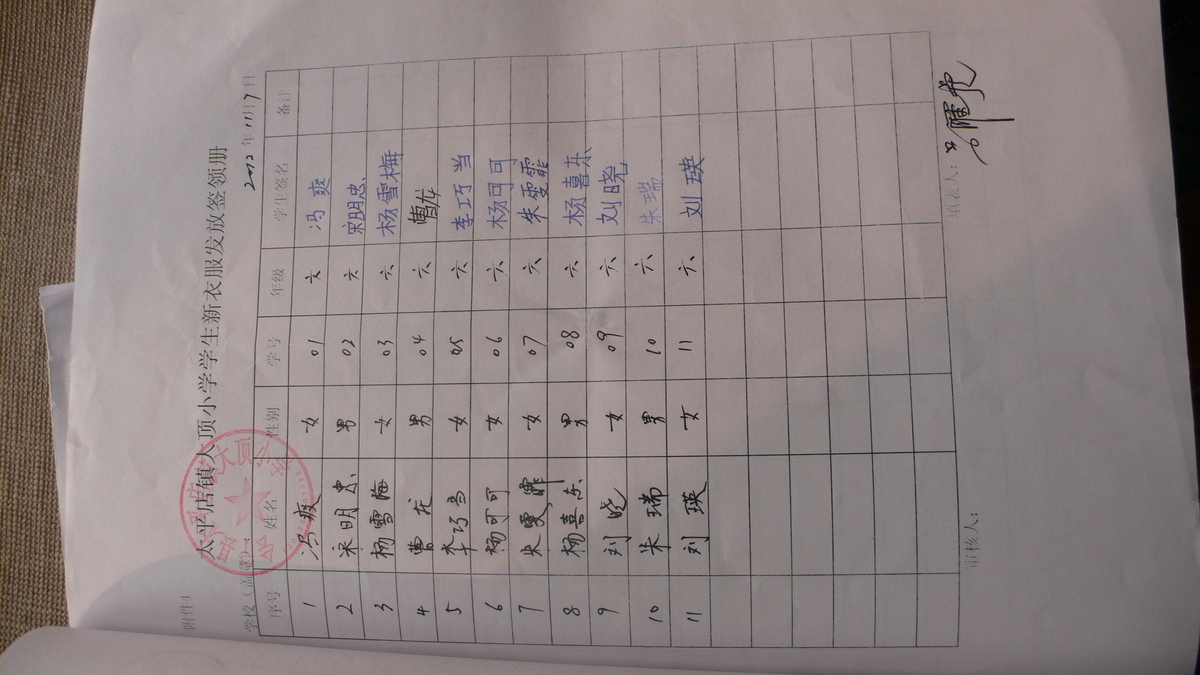 附件4
太平店镇大顶小学学生新衣服发放签领册
学校（盖章）： 2012年11月7日
序号 姓名 性别 学号 年级 学生签名 备注
1 冯爽 女 01 六 冯爽
2 宋明忠 男 02 六 宋明忠
3 杨雪梅 女 03 六 杨雪梅
4 曹龙 男 04 六 曹龙
5 李巧 女 05 六 李巧当
6 杨可可 女 06 六 杨可可
7 朱雯霏 女 07 六 朱雯霏
8 杨喜乐 男 08 六 杨喜乐
9 刘晓 女 09 六 刘晓
10 朱瑞 男 10 六 朱瑞
11 刘瑛 女 11 六 刘瑛
审核人： 填表人：